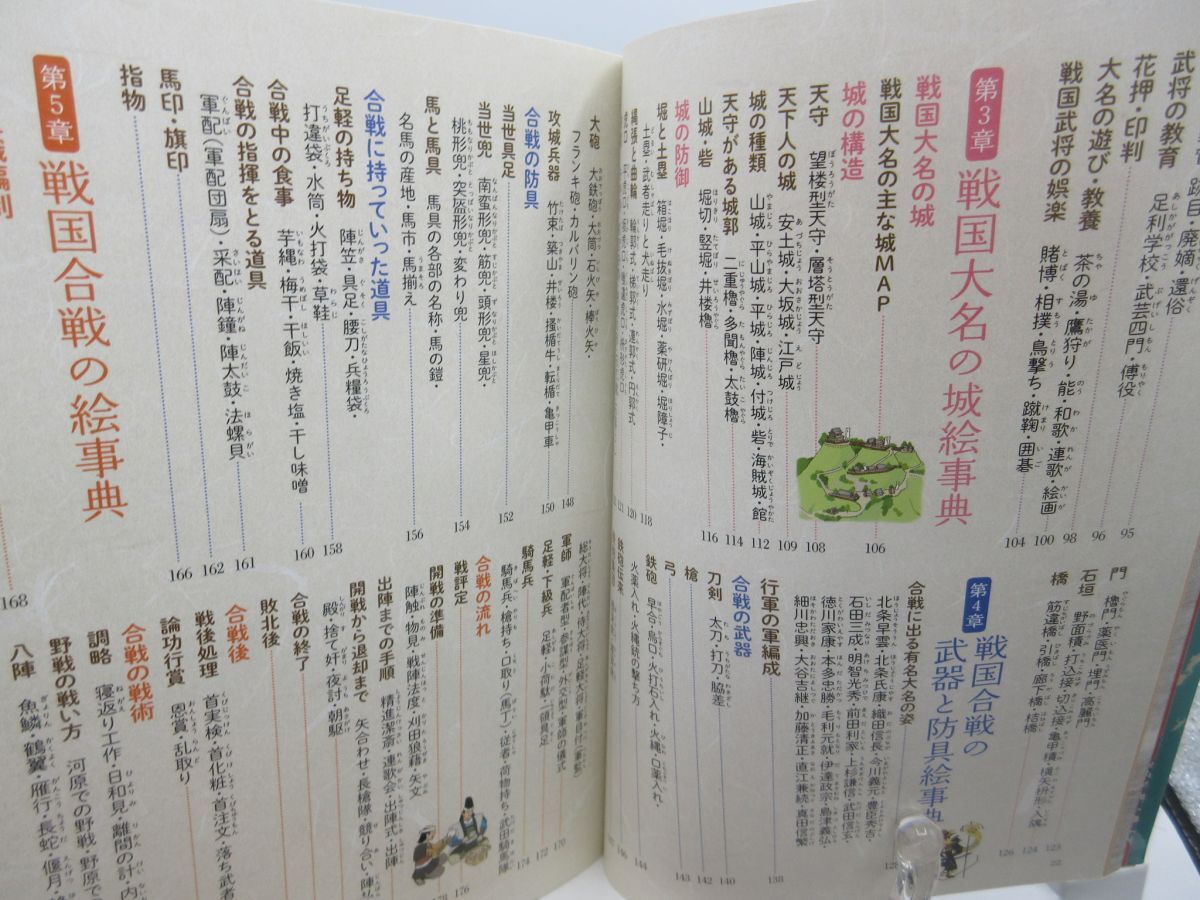 武将の教育
足利学校・武芸四門・傅役
95
花押・印判
96
大名の遊び・教養
茶の湯・鷹狩り・能・和歌・連歌・絵画
98
100
戦国武将の娯楽
賭博・相撲・鳥撃ち・蹴鞠・囲碁
104
第3章
戦国大名の城絵事典
戦国大名の城
戦国大名の主な城MAP
106
城の構造
天守
望楼型天守・層塔型天守
108
天下人の城
安土城・大坂城・江戸城
109
城の種類
山城・平山城・平城・陣城・付城・砦・海賊城・館
112
天守がある城郭
二重櫓・多聞櫓・太鼓櫓
114
山城・砦
堀切・竪堀・井楼櫓
116
城の防御
堀と土塁
箱堀・毛抜堀・水堀・薬研堀・堀障子・
土塁・武者走りと犬走り
118
縄張と曲輪
輪郭式・梯郭式・連郭式・円郭式
120
121
門
櫓門・薬医門・埋門・高麗門
石垣
野面積・打込接・切込接・亀甲積・横矢枡形・入隅
橋
筋違橋・引橋・廊下橋・桔橋
22
123
124
126
第4章
戦国合戦の
武器と防具絵事典
合戦に出る有名大名の姿
北条早雲・北条氏康・織田信長・今川義元・豊臣秀吉・
石田三成・明智光秀・前田利家・上杉謙信・武田信玄・
徳川家康・本多忠勝・毛利元就・伊達政宗・島津義弘
細川忠興・大谷吉継・加藤清正・直江兼続・真田信繁
行軍の軍編成
138
合戦の武器
刀剣
太刀・打刀・脇差
140
槍
142
弓
143
鉄砲
早合・烏口・火打石入れ・火縄・口薬入れ・
火薬入れ・火縄銃の撃ち方
144
146
大砲
大鉄砲・大筒・石火矢・棒火矢・
フランキ砲・カルバリン砲
148
攻城兵器
竹束・築山・井楼・掻楯牛・転楯・亀甲車
150
合戦の防具
当世具足
152
当世兜
南蛮形兜・筋兜・頭形兜・星兜・
桃形兜・突盔形兜・変わり兜
154
馬と馬具
馬具の各部の名称・馬の鎧・
名馬の産地・馬市・馬揃え
156
合戦に持っていった道具
足軽の持ち物
陣笠・具足・腰刀・兵糧袋・
打違袋・水筒・火打袋・草鞋
158
合戦中の食事
芋縄・梅干・干飯・焼き塩・干し味噌
160
合戦の指揮をとる道具
軍配(軍配団扇)・采配・陣鐘・陣太鼓・法螺貝
161
162
馬印・旗印
166
指物
168
第5章
戦国合戦の絵事典
総大将・陣代・侍大将・足軽大将・軍目付(軍監)
軍師
軍配者型・参謀型・外交型・軍師の儀式
170
足軽・下級兵
足軽・小荷駄・一領具足
172
騎馬兵
騎馬兵・槍持ち・口取り(馬丁)・従者・荷物持ち・武田騎馬隊
174
合戦の流れ
戦評定
176
開戦の準備
陣触・物見・戦陣法度・刈田狼藉・矢文
178
出陣までの手順
精進潔斎・連歌会・出陣式・出陣
開戦から退却まで
矢合わせ・長槍隊・競り合い・
殿・捨て奸・夜討・朝駆
合戦の終了
敗北後
合戦後
戦後処理
首実検・首化粧・首注文・落ち武者
論功行賞
恩賞・乱取り
合戦の戦術
調略
寝返り工作・日和見・離間の計・内
野戦の戦い方
河原での野戦・野原で
八陣
魚鱗・鶴翼・雁行・長蛇・偃月・